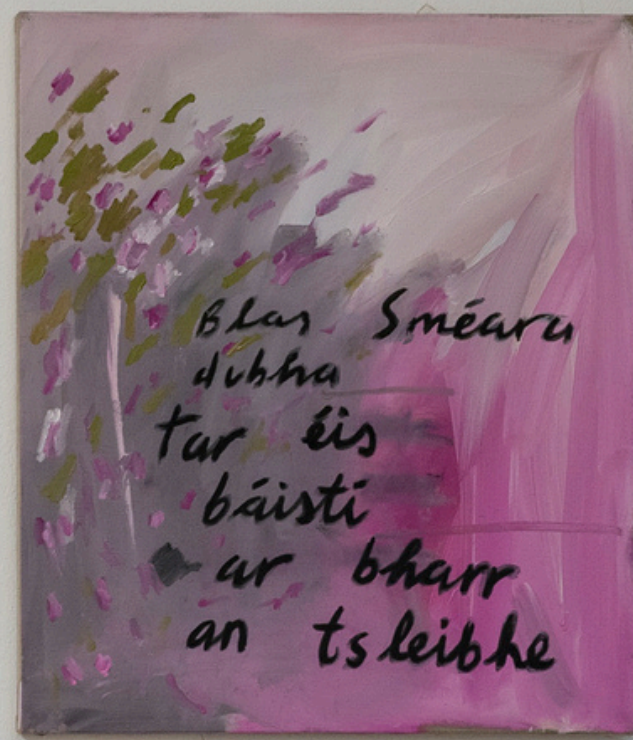 Blas Sméara
dubha
tar éis
báistí
ar bharr
an tsleibhe